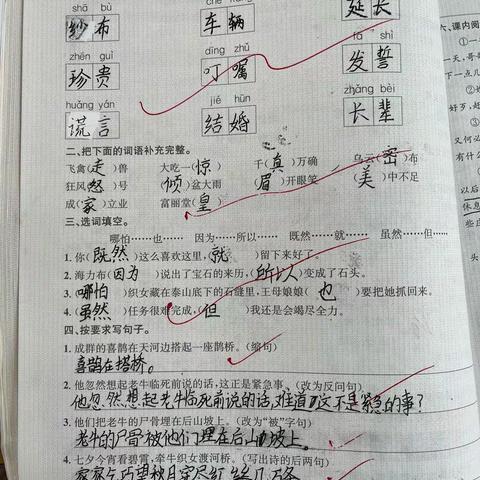 shā bù
chē
纱布 车辆 延长
zhēn guì dīng zhǔ fā shì
珍贵 叮嘱 发誓
huǎng yán jié hūn zhǎng bèi
谎言 结婚 长辈
二、把下面的词语补充完整。
飞禽(走)兽 大吃一(惊) 千(真)万确 乌云(密)布
狂风(怒)号 (倾)盆大雨 (眉)开眼笑 (美)中不足
成(家)立业 富丽堂(皇)
三、选词填空。
哪怕……也…… 因为……所以…… 既然……就…… 虽然……但……
1. 你(既然)这么喜欢这里,(就)留下来好了。
2. 海力布(因为)说出了宝石的来历,(所以)变成了石头。
3. (哪怕)织女藏在泰山底下的石缝里,王母娘娘(也)要把她抓回来。
4. (虽然)任务很难完成,(但)我还是会竭尽全力。
四、按要求写句子。
1. 成群的喜鹊在天河边搭起一座鹊桥。(缩句)
喜鹊在搭桥。
2. 他忽然想起老牛临死前说的话,这正是紧急事。(改为反问句)
他忽然想起老牛临死前说的话,难道这不是紧急的事?
3. 他们把老牛的尸骨埋在后山坡上。(改为“被”字句)
老牛的尸骨被他们埋在后山坡上。
4. 七夕今宵看碧霄,牵牛织女渡河桥。(写出诗的后两句)
家家乞巧望秋月,穿尽红丝几万条
六、课内阅
①一
一天,哥
下一点儿
②
好歹,
又何必
有什么
以后
休息
些
头